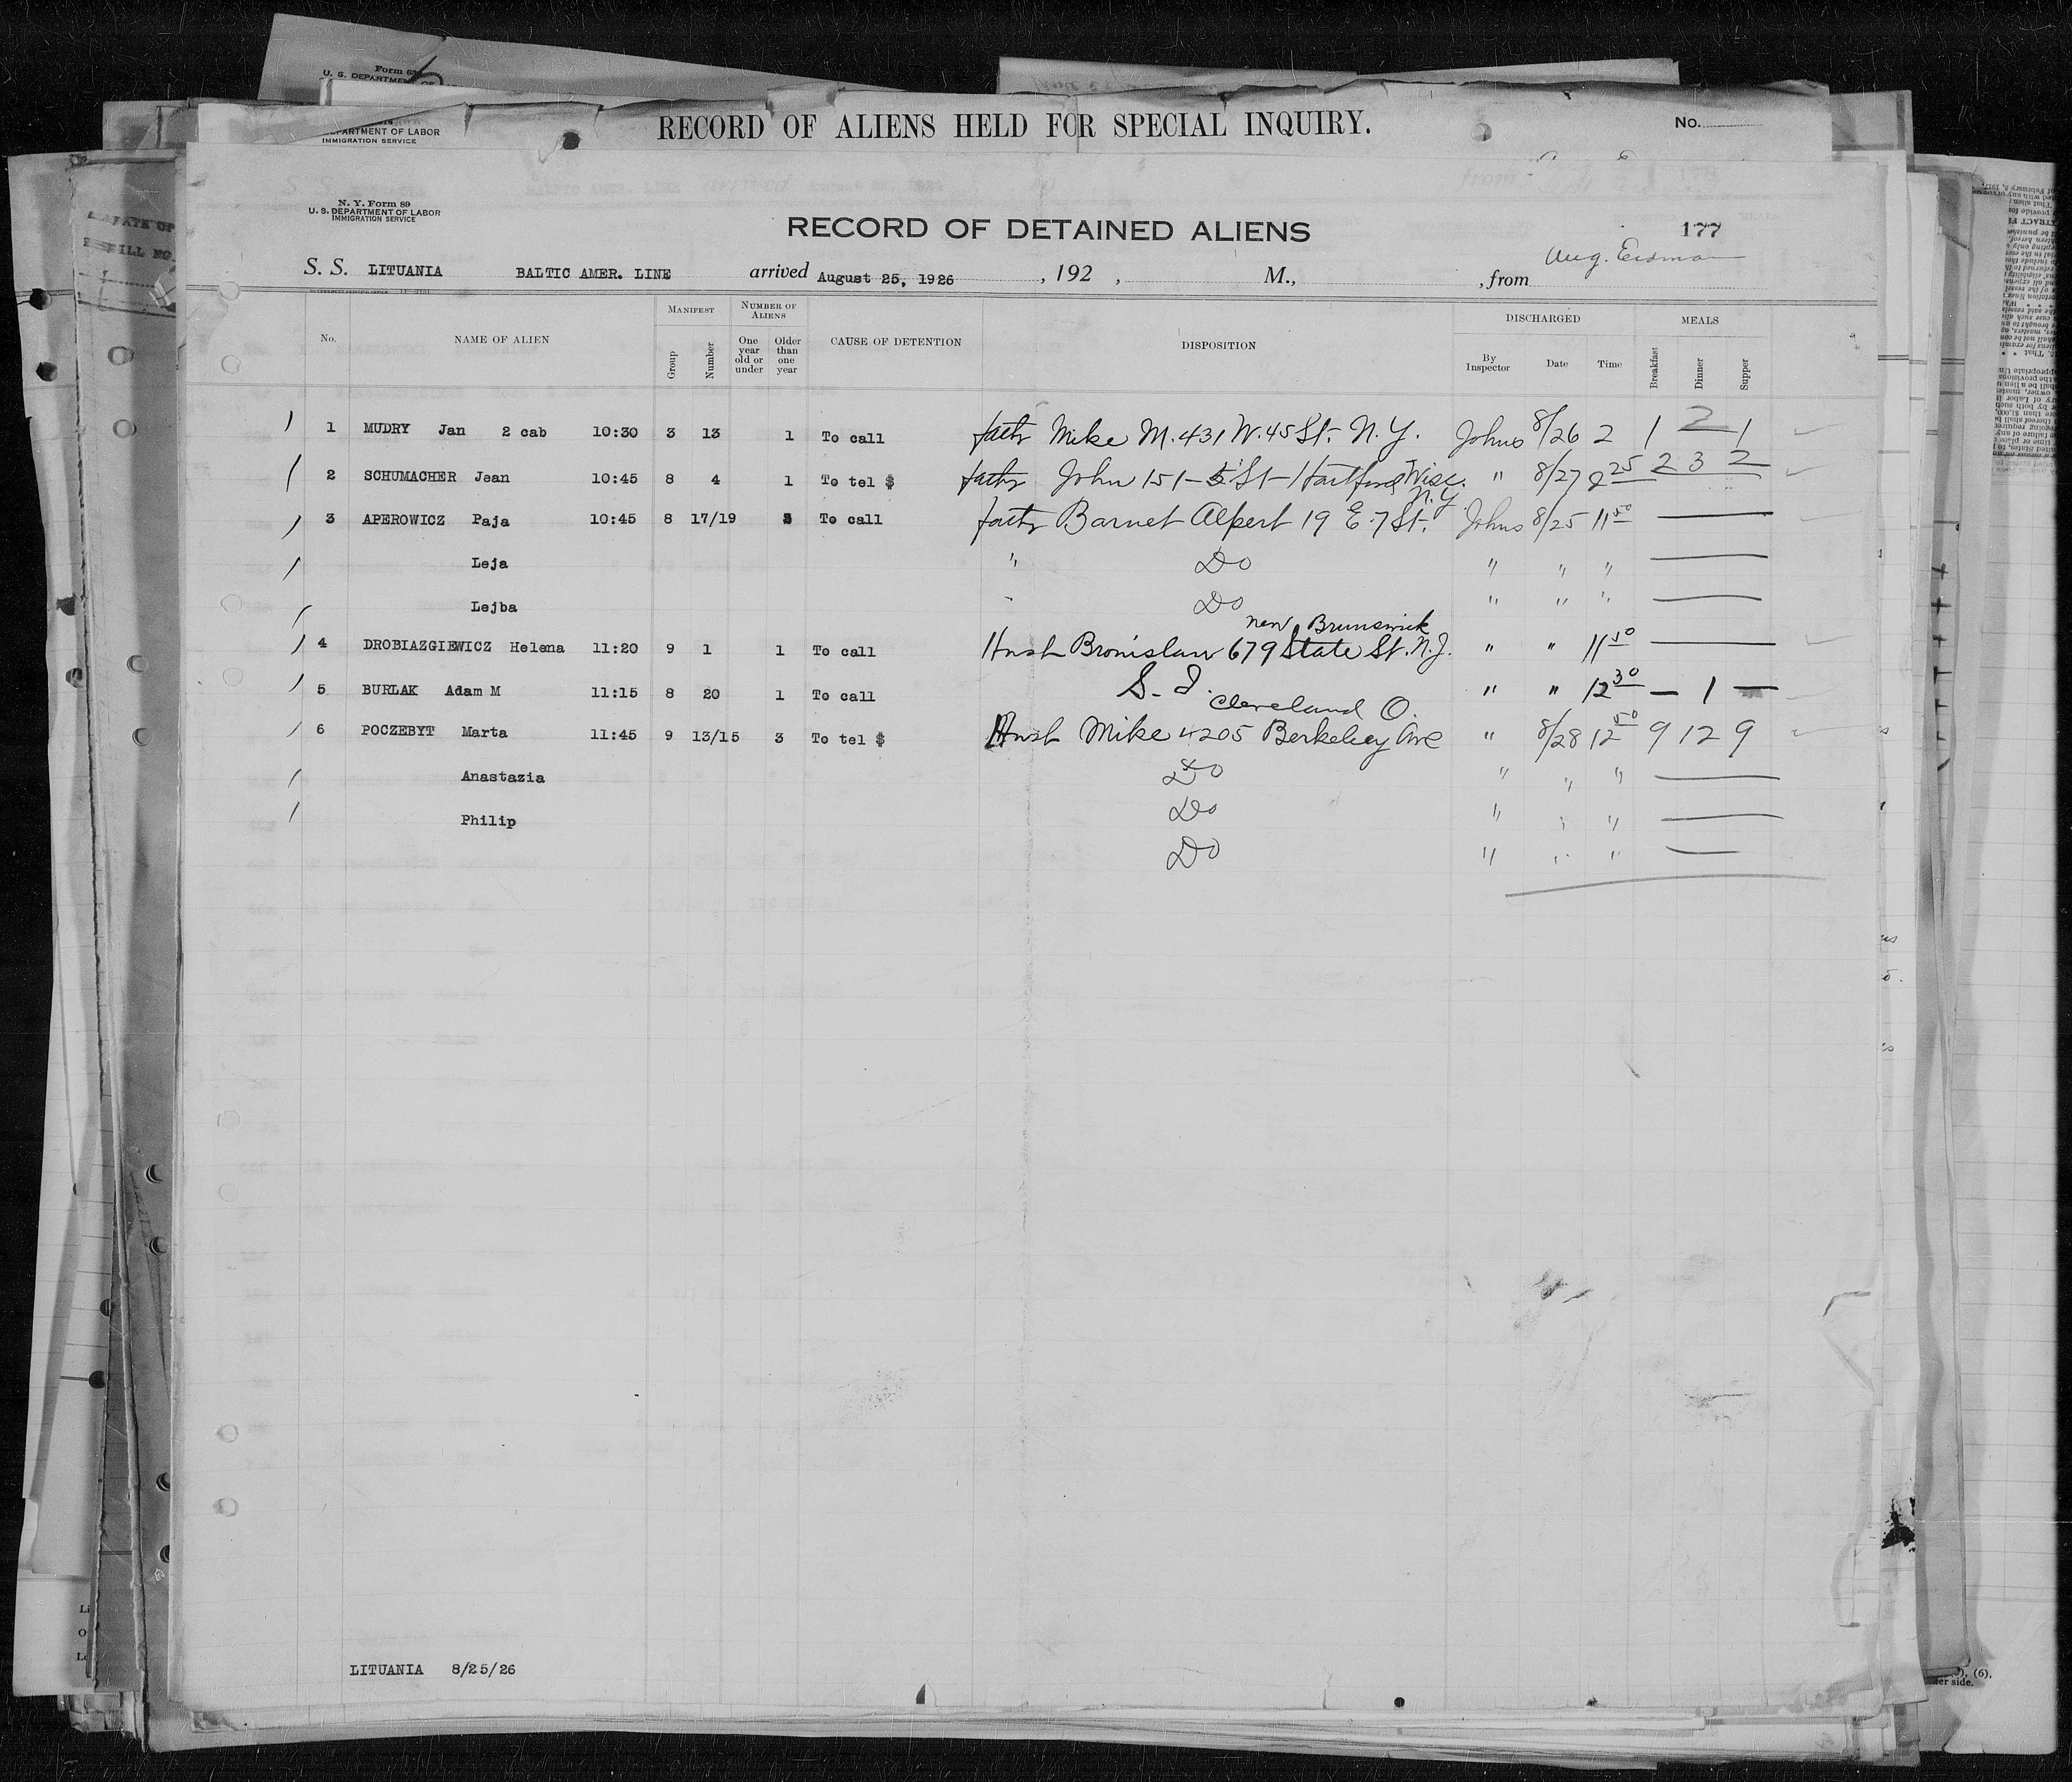 Form
U. S. DEPARTMENT OF
DEPARTMENT OF LABOR
IMMIGRATION SERVICE
RECORD OF ALIENS HELD FOR SPECIAL INQUIRY.
No.
N. Y. Form 89
U. S. DEPARTMENT OF LABOR
IMMIGRATION SERVICE
RECORD OF DETAINED ALIENS
177
S. S. LITUANIA BALTIC AMER. LINE arrived August 25, 1926, 192 , M., , from Aug. Erdman
No. NAME OF ALIEN MANIFEST NUMBER OF ALIENS CAUSE OF DETENTION DISPOSITION DISCHARGED MEALS
Group Number One year old or under Older than one year By Inspector Date Time Breakfast Dinner Supper
1 MUDRY Jan 2 cab 10:30 3 13 1 To call fath Mike M. 431 W. 45 St. N.Y. Johns 8/26 2 1 2 1
2 SCHUMACHER Jean 10:45 8 4 1 To tel $ fath John 151-5 St- Hartford Wisc. " 8/27 2 25 2 3 2
3 APEROWICZ Paja 10:45 8 17/19 3 To call fath Barnet Alpert 19 E. 7 St. N.Y Johns 8/25 11 50 —
Leja " Do " " " —
Lejba " Do " " " —
New Brunswick
4 DROBIAZGIEWICZ Helena 11:20 9 1 1 To call Husb Bronislaw 679 State St. N.J. " " 11 50 —
5 BURLAK Adam M 11:15 8 20 1 To call S. I. " " 12 30 — 1 —
Cleveland O.
6 POCZEBYT Marta 11:45 9 13/15 3 To tel $ Husb Mike 4205 Berkeley Ave " 8/28 12 50 9 12 9
Anastazia Do " " " —
Philip Do " " " —
Do " " " —
LITUANIA 8/25/26